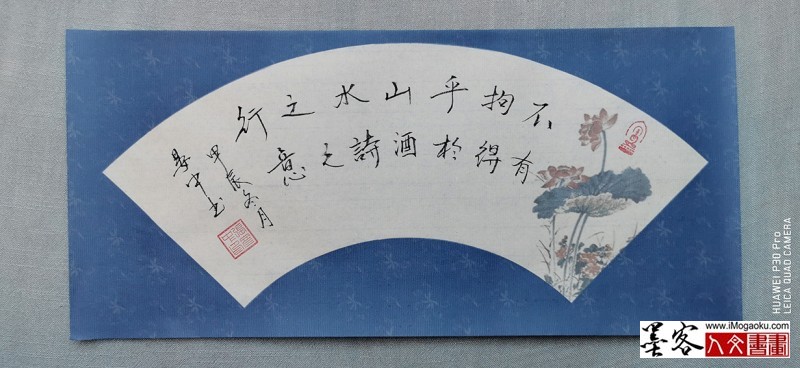 不拘乎山水之行
有得於酒詩之意
甲辰冬月
书
HUAWEI P30 Pro
LEICA QUAD CAMERA
墨客
www.iMogaoku.com
人文書畫